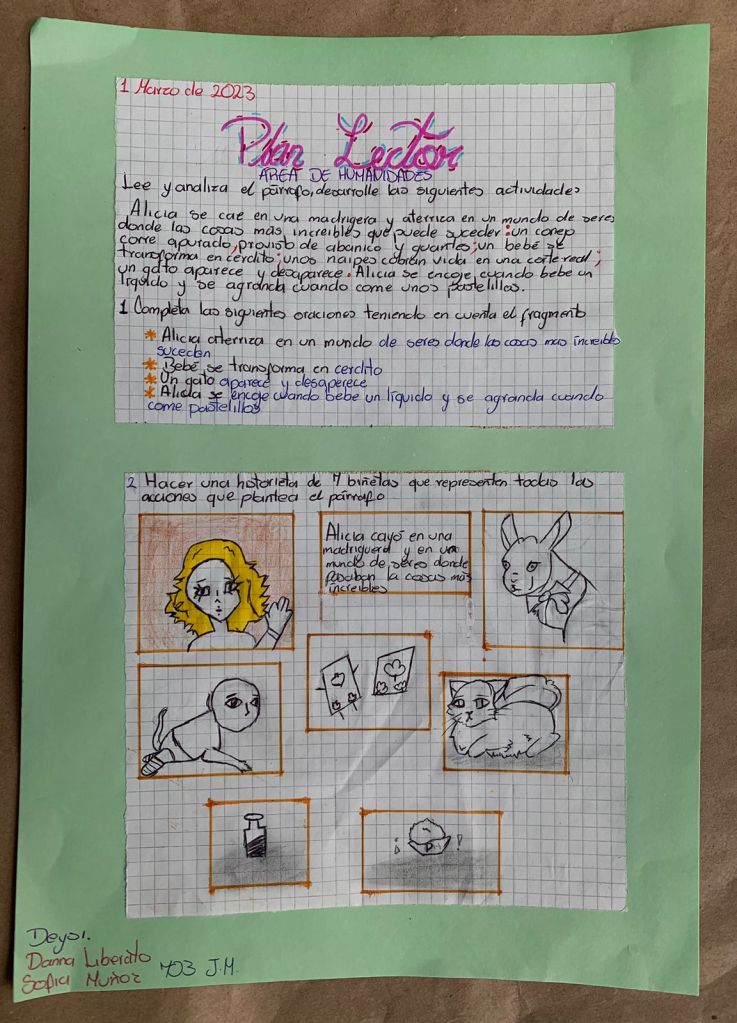 1 Marzo de 2023
Plan Lector
ÁREA DE HUMANIDADES
Lee y analiza el párrafo, desarrolle las siguientes actividades
Alicia se cae en una madrigera y aterriza en un mundo de seres
donde las cosas más increibles que puede suceder: un conep
corre apurado, provisto de abanico y guantes; un bebé se
transforma en cerdito; unos naipes cobran vida en una corte real;
un gato aparece y desaparece. Alicia se encoje cuando bebe un
líquido y se agranda cuando come unos pastelillos.
1 Completa las siguientes oraciones teniendo en cuenta el fragmento
* Alicia aterriza en un mundo de seres donde las cosas mas increible
suceden
* Bebé se transforma en cerdito
* Un gato aparece y desaperece
* Alicia se encoje cuando bebe un líquido y se agranda cuando
come pastelillos
2 Hacer una historieta de 7 biñetas que representen todas las
acciones que plantea el párrafo
Alicia cayó en una
madriguera y en un
mundo de seres donde
pasaban la cosas más
increibles
¡ !
Deysi.
Danna Liberato
Sofia Muñoz 703 J.M.